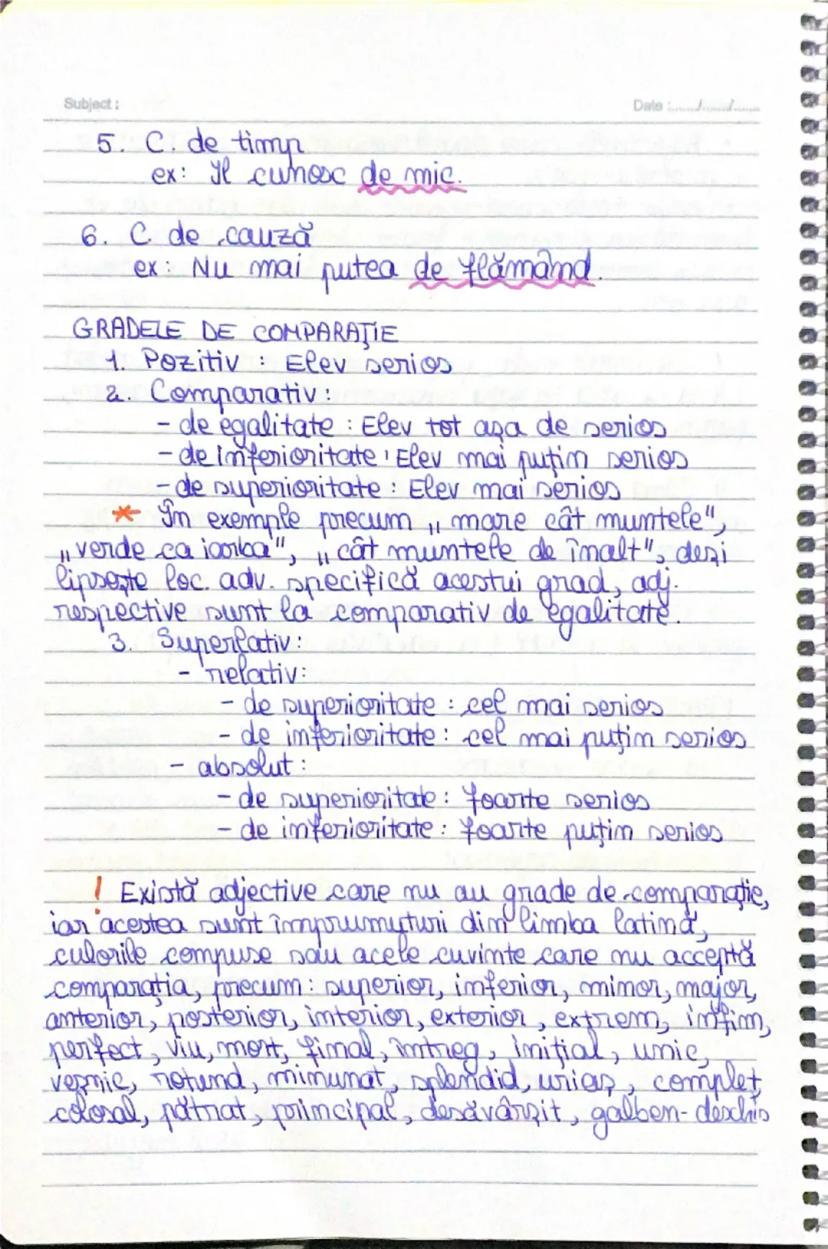 Subject :
Date :....../....../......
5. C. de timp
ex: Îl cunosc de mic.
6. C. de cauză
ex: Nu mai putea de flămând.
GRADELE DE COMPARAȚIE
1. Pozitiv : Elev serios
2. Comparativ :
- de egalitate : Elev tot așa de serios
- de inferioritate : Elev mai puțin serios
- de superioritate : Elev mai serios
* În exemple precum „ mare cât muntele",
„ verde ca iarba", „ cât muntele de înalt", deși
lipsește loc. adv. specifică acestui grad, adj.
respective sunt la comparativ de egalitate.
3. Superlativ:
- relativ:
- de superioritate : cel mai serios
- de inferioritate : cel mai puțin serios
- absolut :
- de superioritate : foarte serios
- de inferioritate : foarte puțin serios
! Există adjective care nu au grade de comparație,
iar acestea sunt împrumuturi din limba latină,
culorile compuse sau acele cuvinte care nu acceptă
comparația, precum : superior, inferior, minor, major,
anterior, posterior, interior, exterior, extrem, infim,
perfect, viu, mort, final, întreg, inițial, unic,
veșnic, rotund, minunat, splendid, uriaș, complet,
colosal, pătrat, principal, desăvârșit, galben-deschis